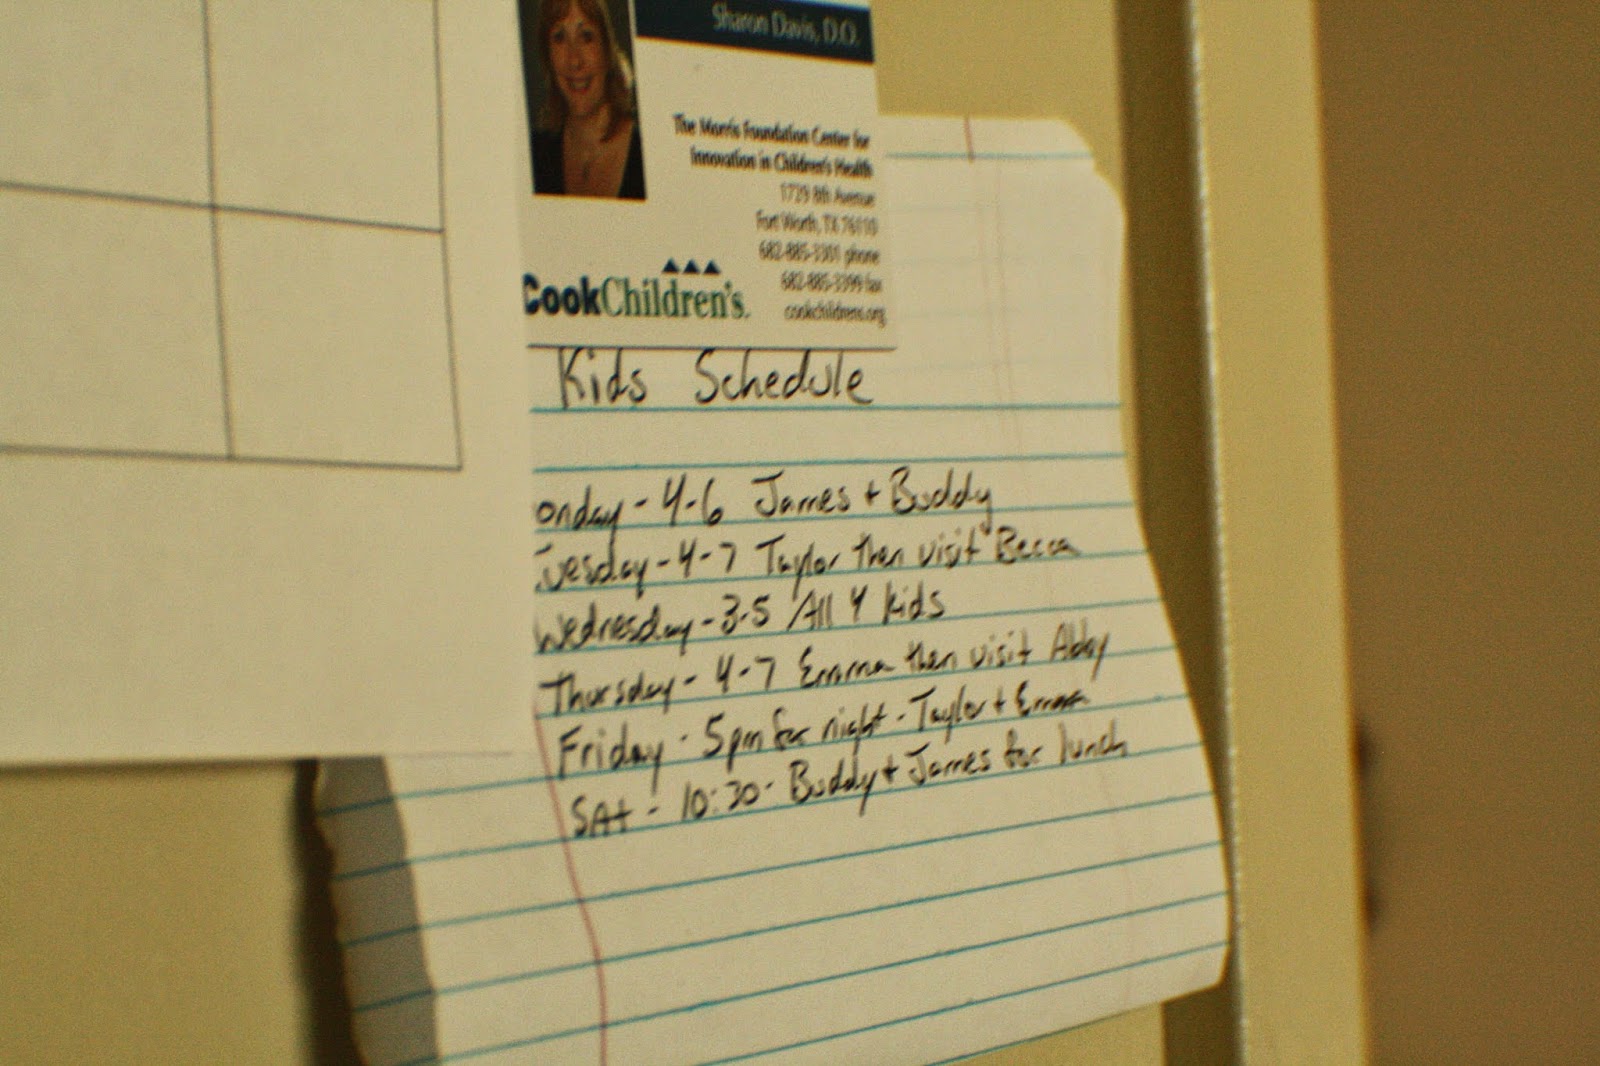 Sharon Davis, D.O.
The Morris Foundation Center for
Innovation in Children's Health
1729 8th Avenue
Fort Worth, TX 76110
682-885-3301 phone
682-885-3399 fax
cookchildrens.org
CookChildren's.
Kids Schedule
onday - 4-6 James + Buddy
Tuesday - 4-7 Taylor then visit Becca
Wednesday - 3-5 All 4 kids
Thursday - 4-7 Emma then visit Abby
Friday - 5pm for night - Taylor + Emma
SAt - 10:30 - Buddy + James for lunch